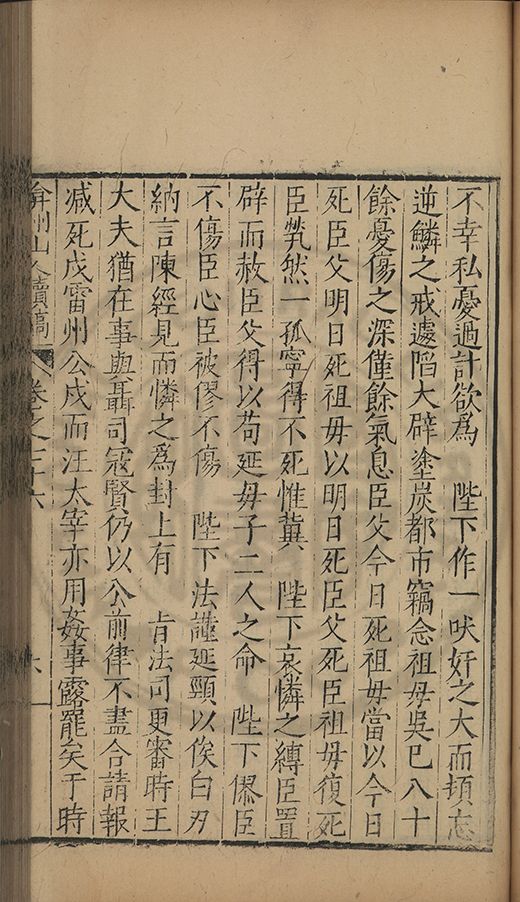 不幸私憂過計欲為　陛下作一吠奸之犬而頓忘
逆鱗之戒遽陷大辟塗炭都市竊念祖母吳巳八十
餘憂傷之深僅餘氣息臣父今日死祖母當以今日
死臣父明日死祖母以明日死臣父死臣祖母復死
臣煢然一孤寧得不死惟冀　陛下哀憐之縛臣置
辟而赦臣父得以苟延母子二人之命　陛下僇臣
不傷臣心臣被僇不傷　陛下法謹延頸以俟白刃
納言陳經見而憐之為封上有　旨法司更審時王
大夫猶在事與聶司寇賢仍以公前律不盡合請報
減死戍雷州公戍而汪太宰亦用姦事露罷矣于時
弇州山人續稿　卷之　十六　六